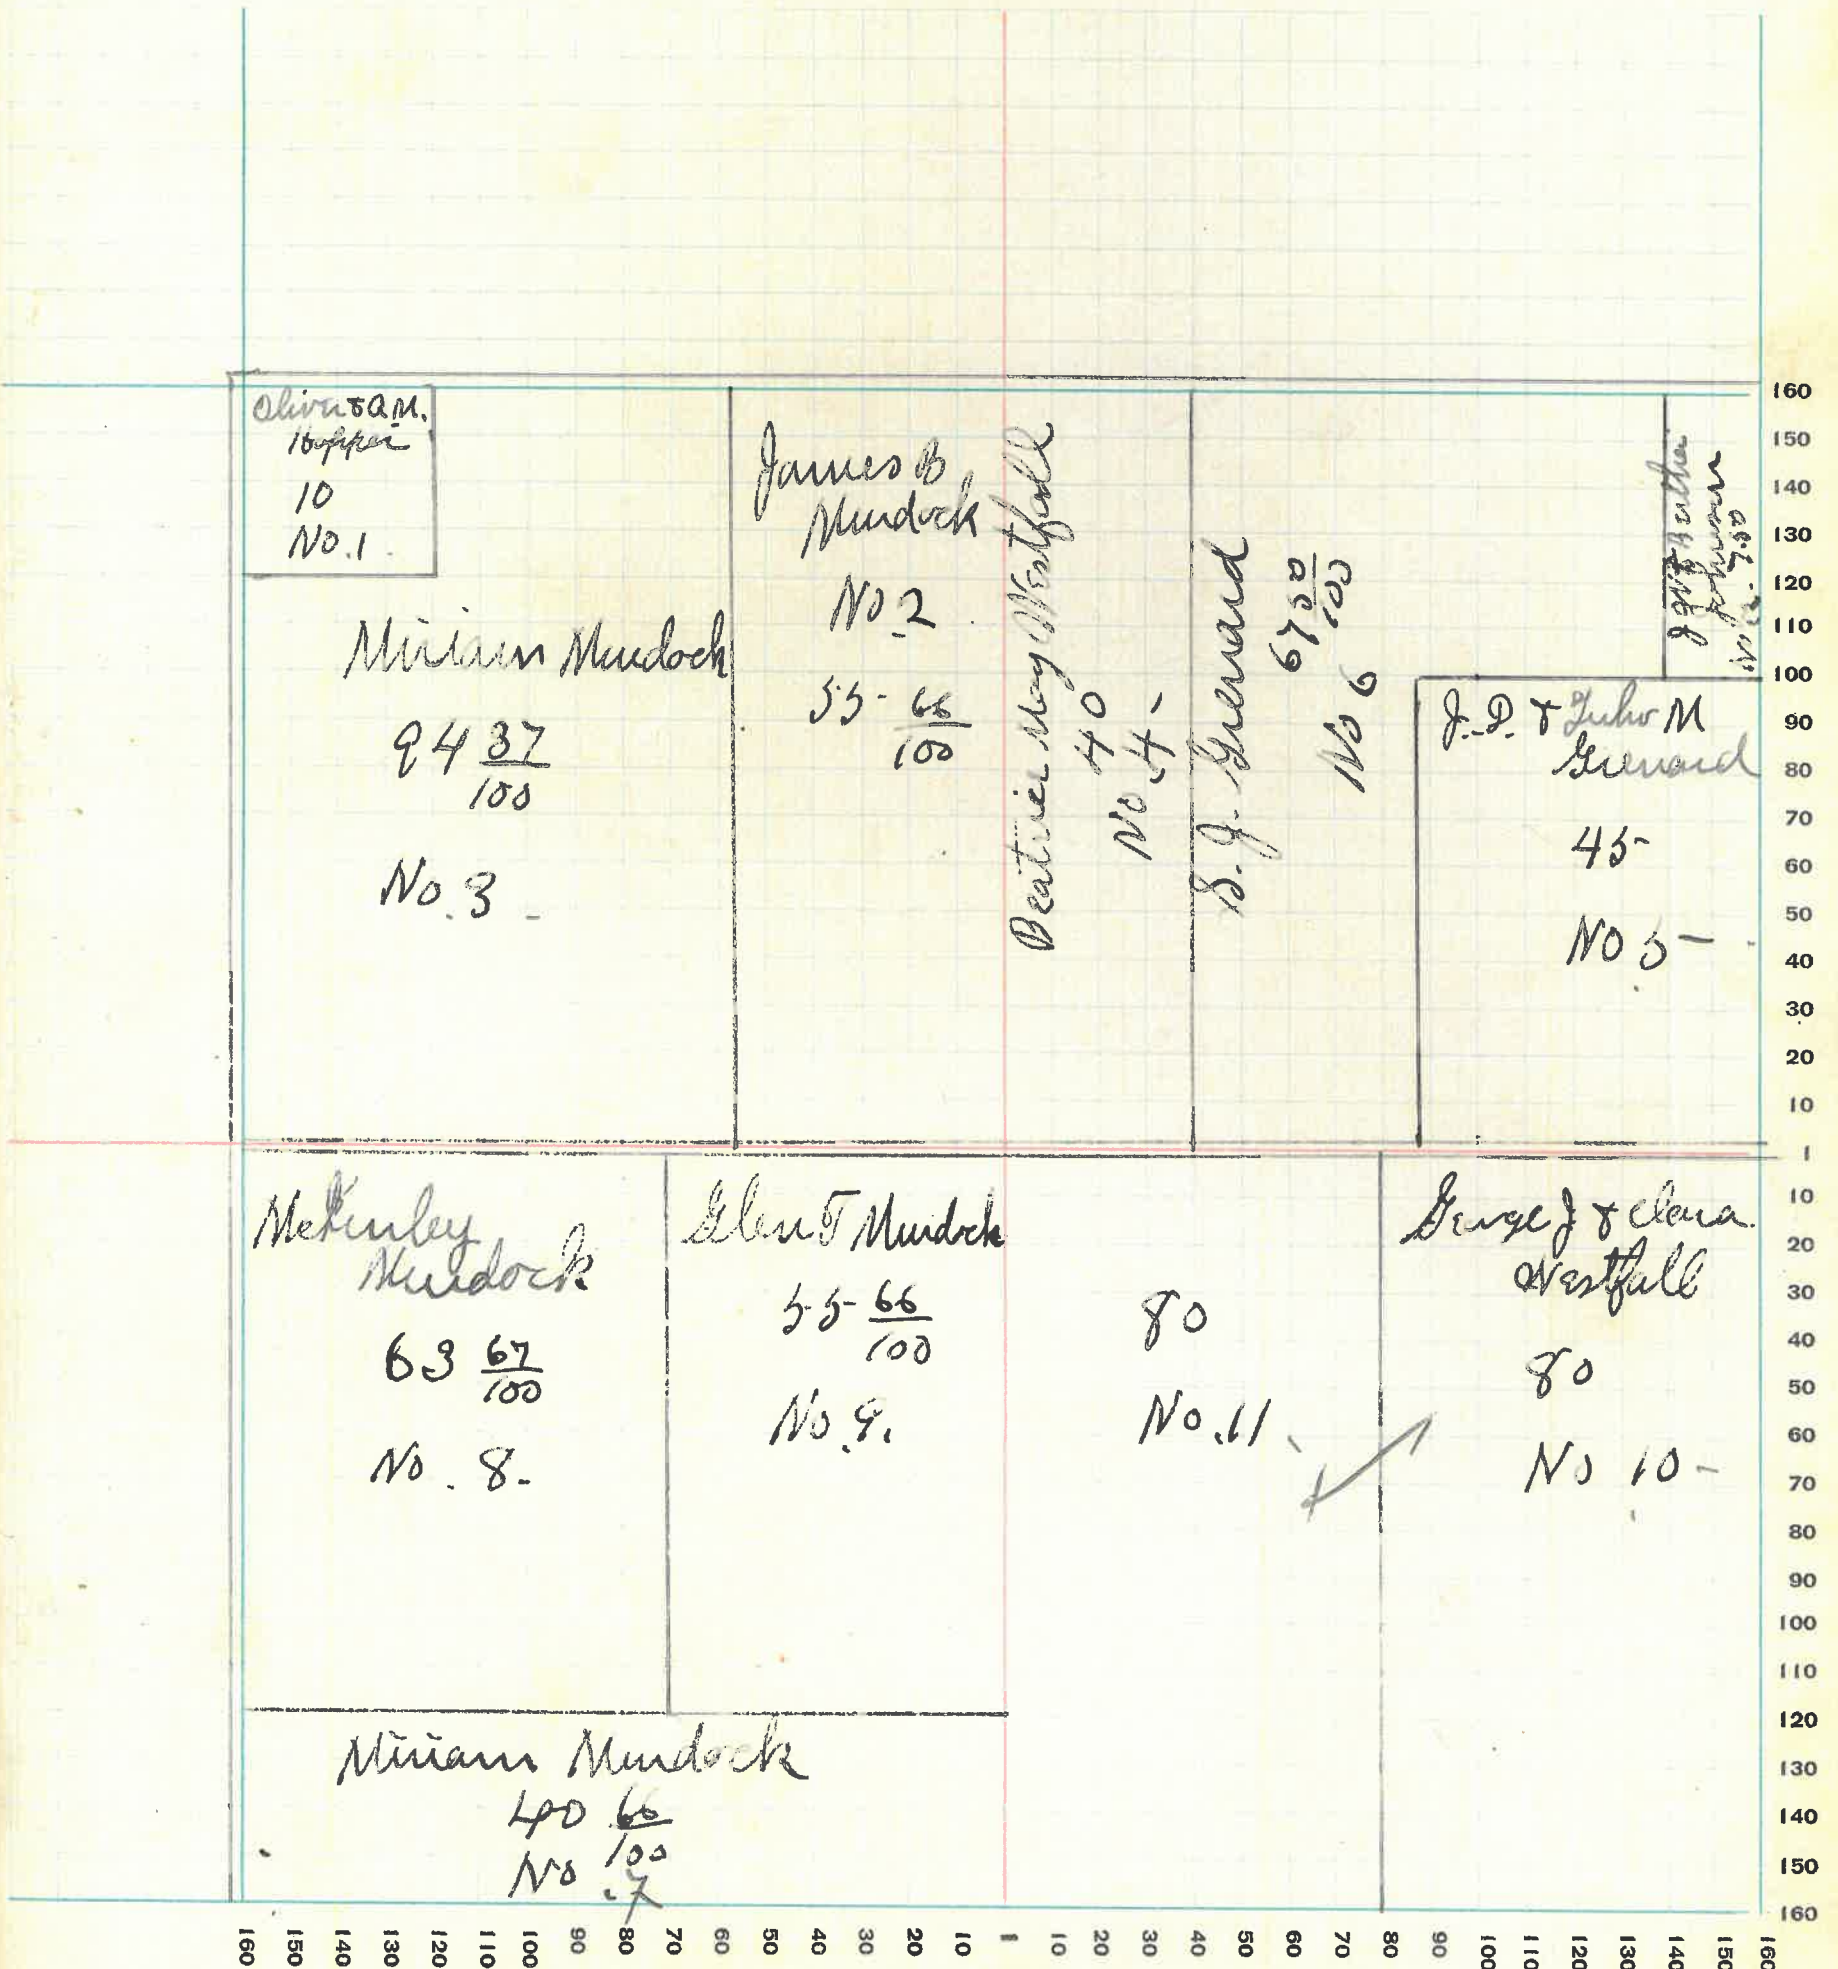 Oliver & A.M.
Hopper
10
No. 1.
Miriam Murdock
94 37/100
No. 3
James B
Murdock
No 2
55 66/100
Beatrice May Westfall
40
No. 4
S. J. Grenard
67 50/100
No 6
Johnson
7.50
J. D. & M
Grenard
45
No 5
McKinley
Murdock
63 67/100
No. 8
Glen T Murdock
55 66/100
No. 9.
80
No. 11
George J & Clara
Westfall
80
No 10
Miriam Murdock
40 66/100
No. 7
160
150
140
130
120
110
100
90
80
70
60
50
40
30
20
10
1
10
20
30
40
50
60
70
80
90
100
110
120
130
140
150
160
160 150 140 130 120 110 100 90 80 70 60 50 40 30 20 10 1 10 20 30 40 50 60 70 80 90 100 110 120 130 140 150 160